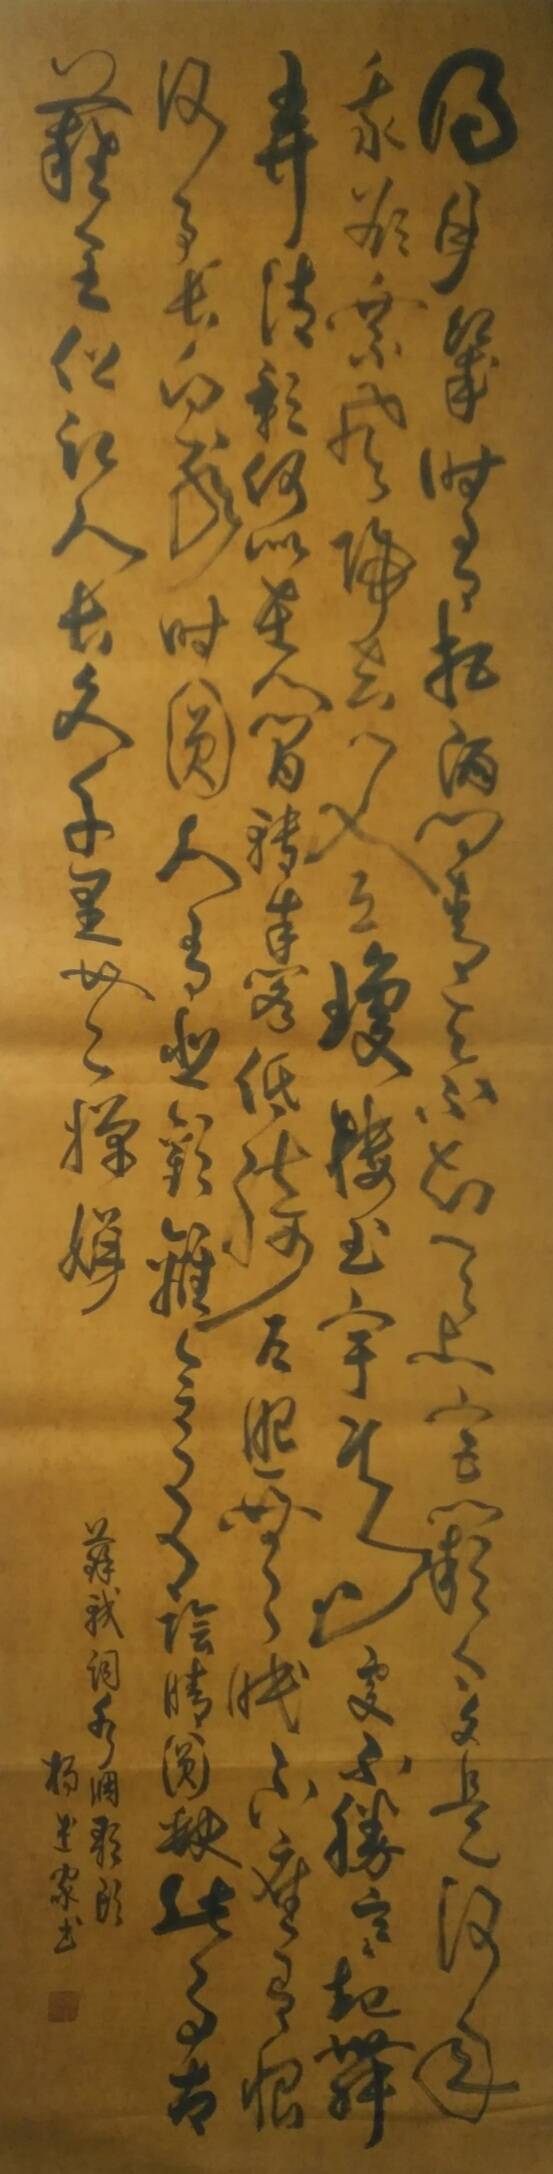 明月幾時有把酒問青天不知天上宮闕今夕是何年
我欲乘風歸去又恐瓊樓玉宇高處不勝寒起舞
弄清影何似在人間轉朱閣低綺戶照無眠不應有恨
何事長向別時圓人有悲歡離合月有陰晴圓缺此事古
難全但願人長久千里共嬋娟
蘇軾詞水調歌頭
楊家書